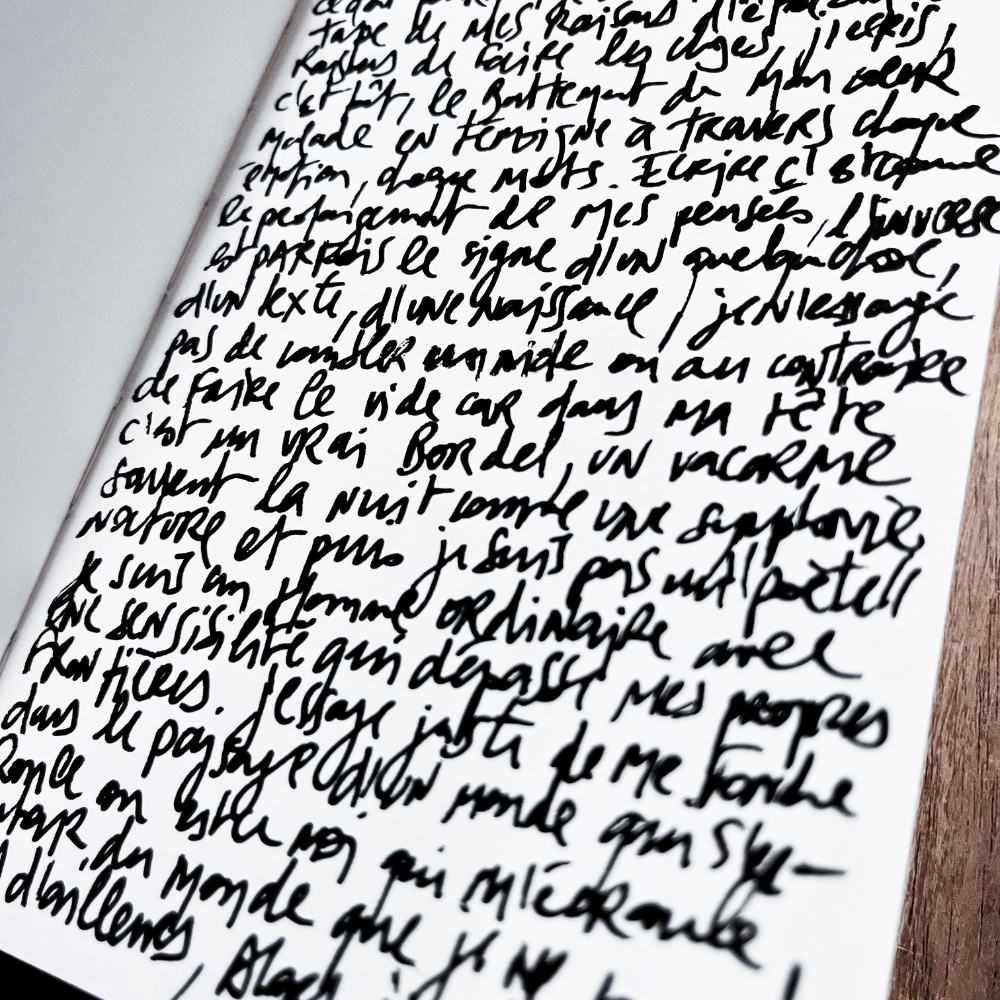 tape de mes raisons d'é
raisons de faire les choses, j'écris,
c'est tôt, le Battement de mon coeur
malade en témoigne à travers chaque
émotion, chaque mots. Ecrire c'est comme
le prolongement de mes pensées, l'inverse
est parfois le signe d'un quelque chose,
d'un texte, d'une naissance, je n'essaye
pas de combler un vide ou au contraire
de faire le vide car dans ma tête
c'est un vrai Bordel, un vacarme
souvent la nuit comme une symphonie
nocture et puis je suis pas un "poète"
je suis un Homme ordinaire avec
une sensibilité qui dépasse mes propres
frontières. J'essaye juste de me fondre
dans le paysage d'un monde qui s'é-
Roule ou est-ce moi qui m'écroule
du monde que je ne
d'ailleurs,